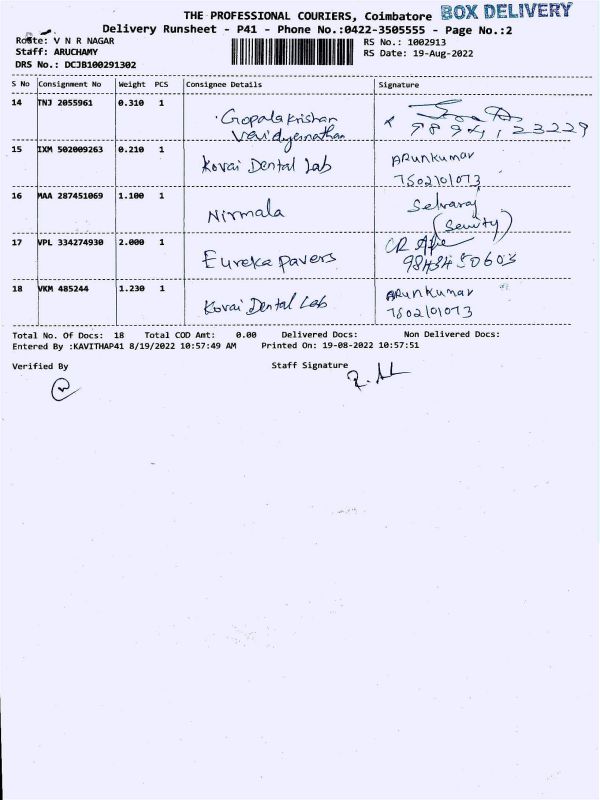 THE PROFESSIONAL COURIERS, Coimbatore BOX DELIVERY
Delivery Runsheet - P41 - Phone No.:0422-3505555 - Page No.:2
Route: V N R NAGAR RS No.: 1002913
Staff: ARUCHAMY RS Date: 19-Aug-2022
DRS No.: DCJB100291302
S No Consignment No Weight PCS Consignee Details Signature
14 TNJ 2055961 0.310 1 Gopalakrishan
Vaidyernathan 98941,23229
15 IXM 502009263 0.210 1 Kovai Dental Lab ARunkumar
7502101073
16 MAA 287451069 1.100 1 Nirmala Selvaraj
17 VPL 334274930 2.000 1 Eureka Pavers
18 VKM 485244 1.230 1 Kovai Dental Lab ARunkumar
7502101073
Total No. Of Docs: 18 Total COD Amt: 0.00 Delivered Docs: Non Delivered Docs:
Entered By :KAVITHAP41 8/19/2022 10:57:49 AM Printed On: 19-08-2022 10:57:51
Verified By Staff Signature